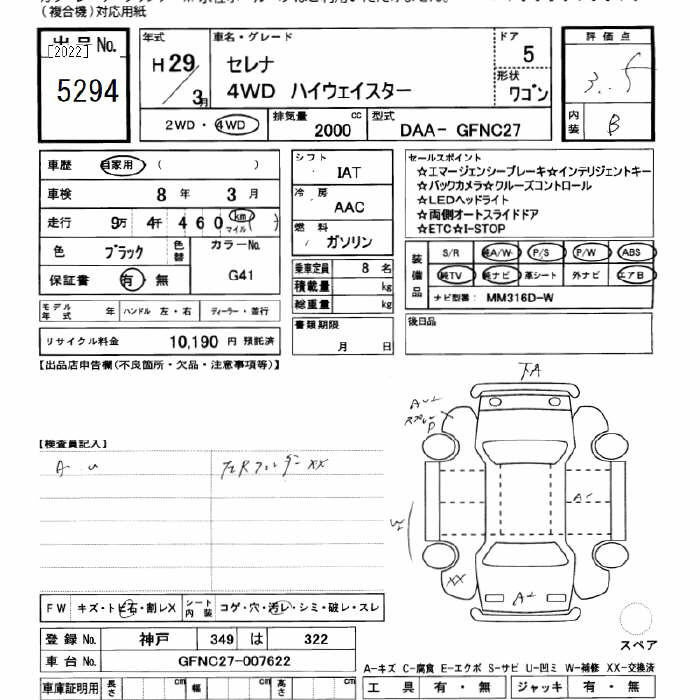 (複合機)対応用紙
出品No.
[2022]
5294
年式
H29/3月
車名・グレード
セレナ
4WD ハイウェイスター
ドア
5
形状
ワゴン
評価点
3.5
内装
B
2WD・4WD
排気量
2000 cc
型式
DAA- GFNC27
車歴 自家用 ( )
車検 8年 3月
走行 9万 4千 460 km マイル ( )
色 ブラック 色替 カラーNo.
保証書 有 無 G41
シフト
IAT
冷房
AAC
燃料
ガソリン
乗車定員 8 名
積載量 kg
総重量 kg
書類期限
月 日
セールスポイント
☆エマージェンシーブレーキ☆インテリジェントキー
☆バックカメラ☆クルーズコントロール
☆LEDヘッドライト
☆両側オートスライドドア
☆ETC☆I-STOP
装備品
S/R 純A/W P/S P/W ABS
純TV 純ナビ 革シート 外ナビ エアB
ナビ型番: MM316D-W
モデル年式 年 ハンドル 左・右 ディーラー・並行
リサイクル料金 10,190 円 預託済
後日品
【出品店申告欄(不良箇所・欠品・注意事項等)】
下A
A
P
【検査員記入】
A
XX
A
W
XX
A
FW キズ・トビ石・割レX シート内装 コゲ・穴・汚レ・シミ・破レ・スレ
登録No. 神戸 349 は 322
車台No. GFNC27-007622
スペア
A-キズ C-腐食 E-エクボ S-サビ U-凹ミ W-補修 XX-交換済
車庫証明用 長さ cm 幅 cm 高さ cm
工具 有・無 ジャッキ 有・無